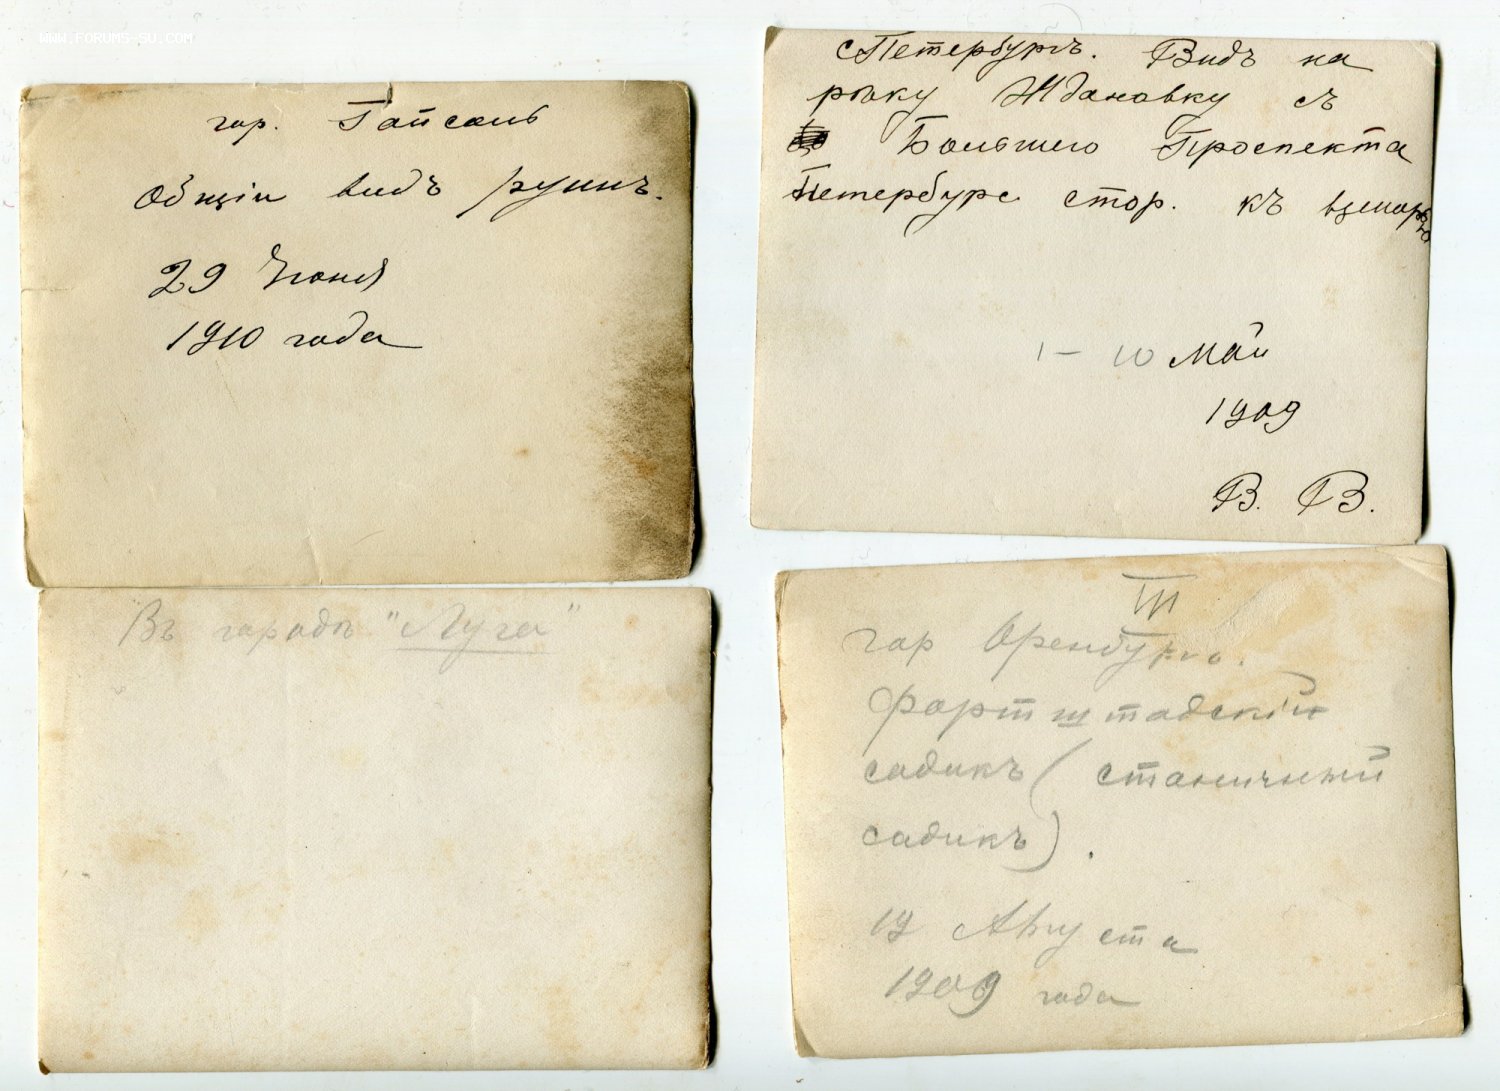 WWW.FORUMS-SU.COM
гор. Гапсаль
Общій видъ руинъ.
29 Іюня
1910 года
СПетербургъ. Видъ на
рѣку Ждановку съ
Большого Проспекта
Петербургс стор. къ
1 – 10 Май
1909
В. В.
Въ городѣ "Луга"
III
гор Оренбургъ.
Форштадскій
садикъ (станичный
садикъ).
Августа
1909 года